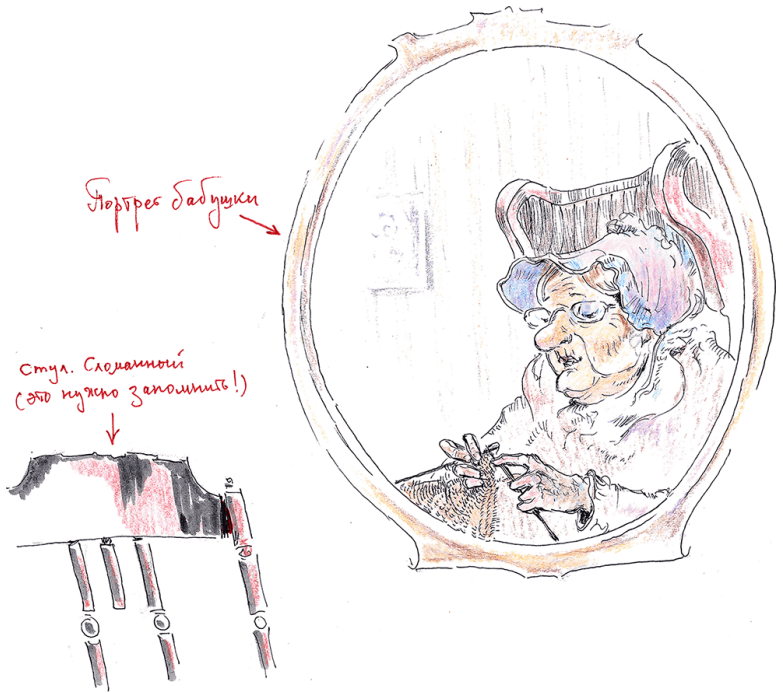 Портрет бабушки
Стул. Сломанный
(это нужно запомнить!)